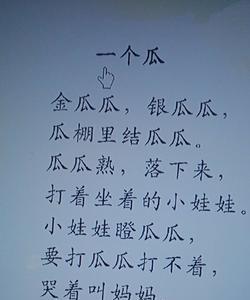 一个瓜
金瓜瓜，银瓜瓜，
瓜棚里结瓜瓜。
瓜瓜熟，落下来，
打着坐着的小娃娃。
小娃娃瞪瓜瓜，
要打瓜瓜打不着，
哭着叫妈妈